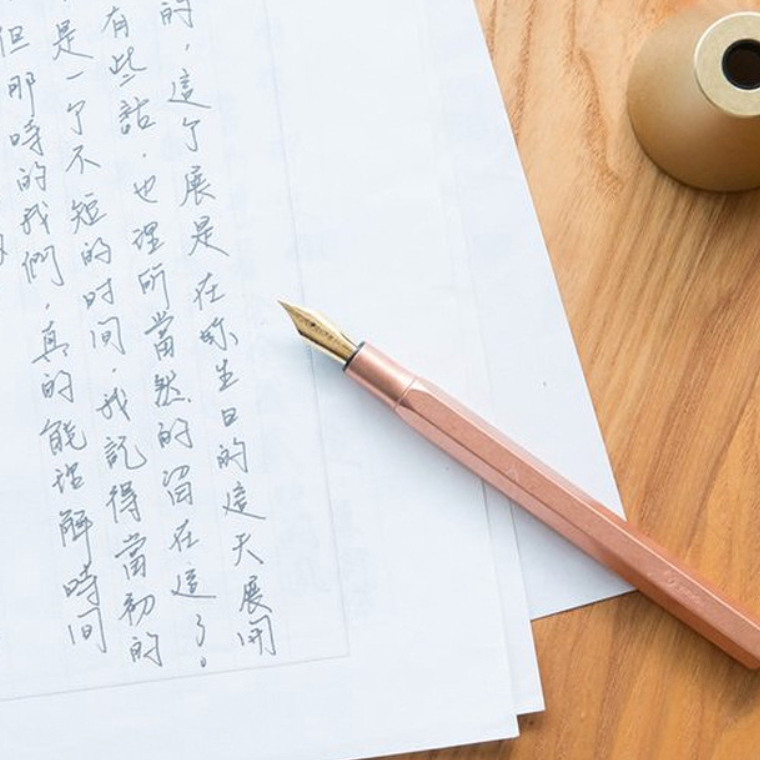 的，這个展是在妳生日的這天展開
有些話，也理所當然的留在這了。
是一个不短的时间，我記得當初的
但那時的我們，真的能理解時間